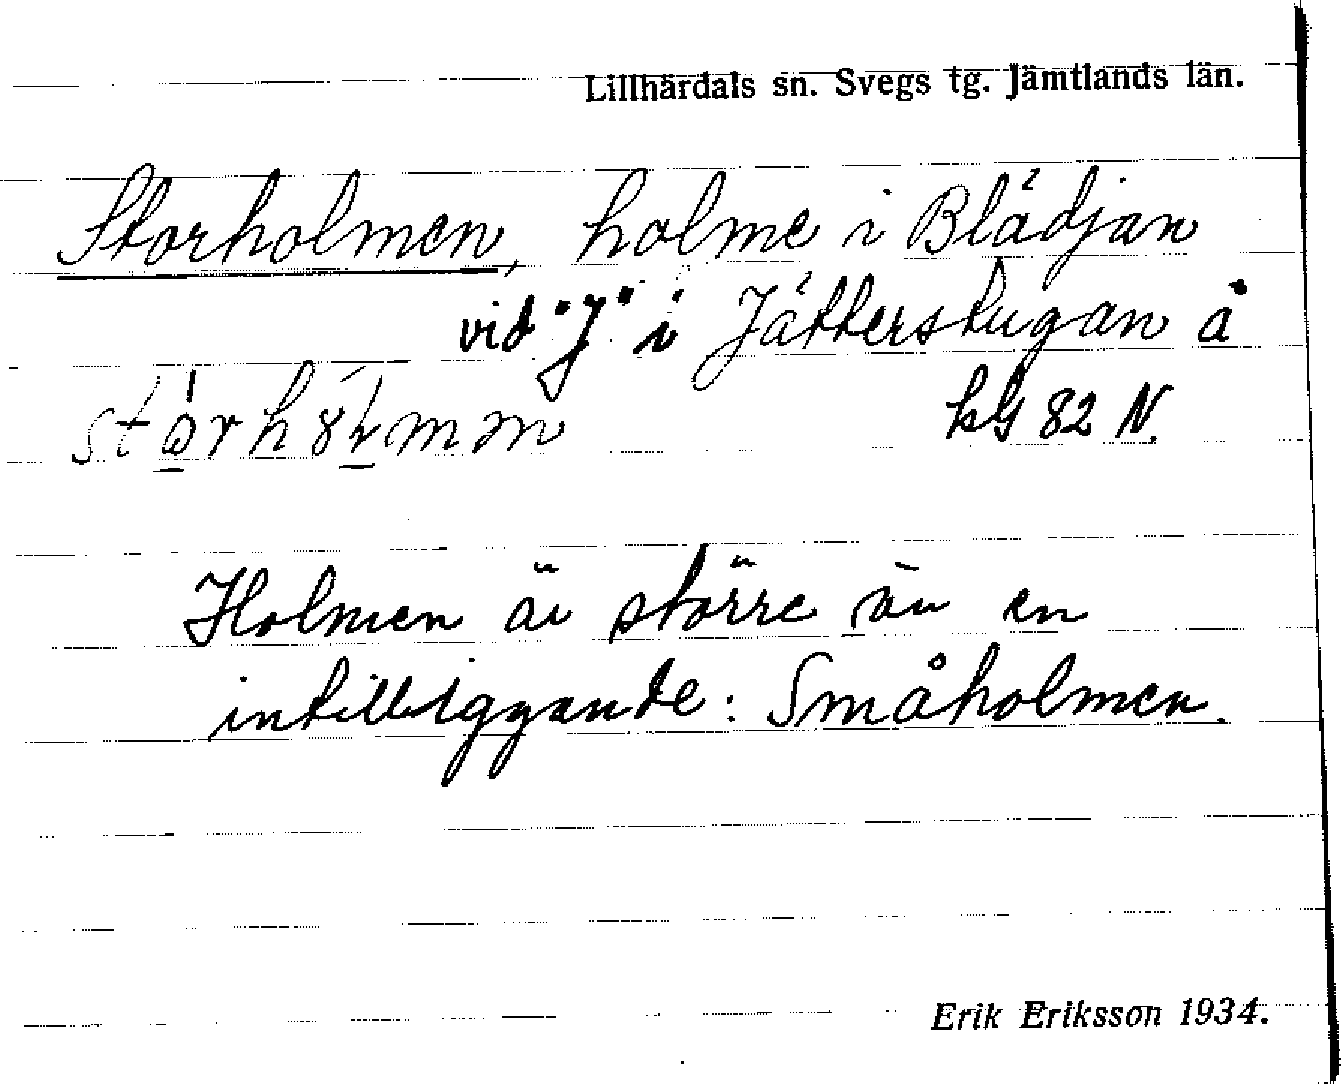 Lillhärdals sn. Svegs tg. Jämtlands län.
Storholmen, holme i Blädjan
vid "J" i Jätterstugan å
kG 82 N.
Holmen är större än en
intilliggande: Småholmen.
Erik Eriksson 1934.